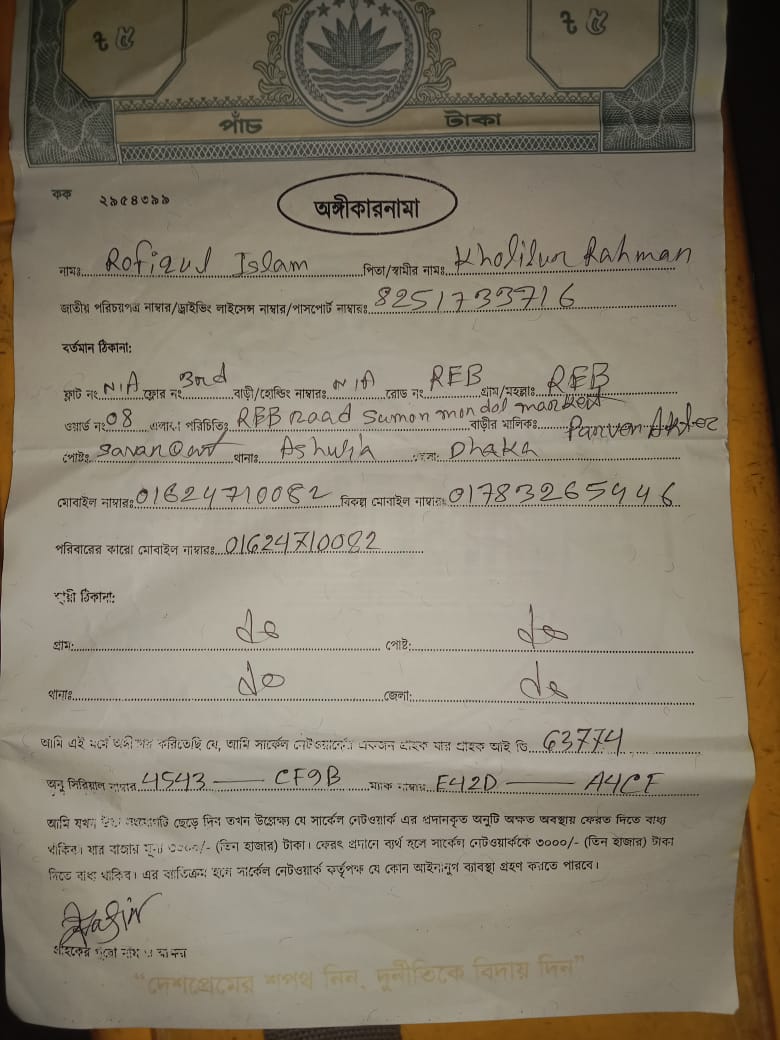 ট ৫ ট ৫
পাঁচ টাকা
কক ২৯৫৪৩৯৯
অঙ্গীকারনামা
নামঃ Rofiqul Islam পিতা/স্বামীর নামঃ Kholilur Rahman
জাতীয় পরিচয়পত্র নাম্বার/ড্রাইভিং লাইসেন্স নাম্বার/পাসপোর্ট নাম্বারঃ 8251733716
বর্তমান ঠিকানা:
ফ্লাট নং N/A ফ্লোর নং 3rd বাড়ী/হোল্ডিং নাম্বারঃ N/A রোড নং REB গ্রাম/মহল্লাঃ REB
ওয়ার্ড নং 08 এলাকা পরিচিতিঃ REB road Sumon mondol market বাড়ীর মালিকঃ Parven Akter
পোষ্টঃ থানাঃ Ashulia জেলা: Dhaka
মোবাইল নাম্বারঃ 01624710082 বিকল্প মোবাইল নাম্বারঃ 01783265446
পরিবারের কারো মোবাইল নাম্বারঃ 01624710082
স্থায়ী ঠিকানা:
গ্রাম: do পোষ্ট: do
থানাঃ do জেলা: do
আমি এই মর্মে অঙ্গীকার করিতেছি যে, আমি সার্কেল নেটওয়ার্কের একজন গ্রাহক যার গ্রাহক আই ডি 63774
অনু সিরিয়াল নাম্বার 4543 — CF9B ম্যাক নাম্বার E42D — A4CF
আমি যখন উক্ত সংযোগটি ছেড়ে দিব তখন উল্লেখ্য যে সার্কেল নেটওয়ার্ক এর প্রদানকৃত অনুটি অক্ষত অবস্থায় ফেরত দিতে বাধ্য
থাকিব। যার বাজার মূল্য ৩০০০/- (তিন হাজার) টাকা। ফেরৎ প্রদানে ব্যর্থ হলে সার্কেল নেটওয়ার্ককে ৩০০০/- (তিন হাজার) টাকা
দিতে বাধ্য থাকিব। এর ব্যতিক্রম হলে সার্কেল নেটওয়ার্ক কর্তৃপক্ষ যে কোন আইনানুগ ব্যবস্থা গ্রহণ করতে পারবে।
গ্রাহকের পুরো নাম ও স্বাক্ষর
“দেশপ্রেমের শপথ নিন, দুর্নীতিকে বিদায় দিন”